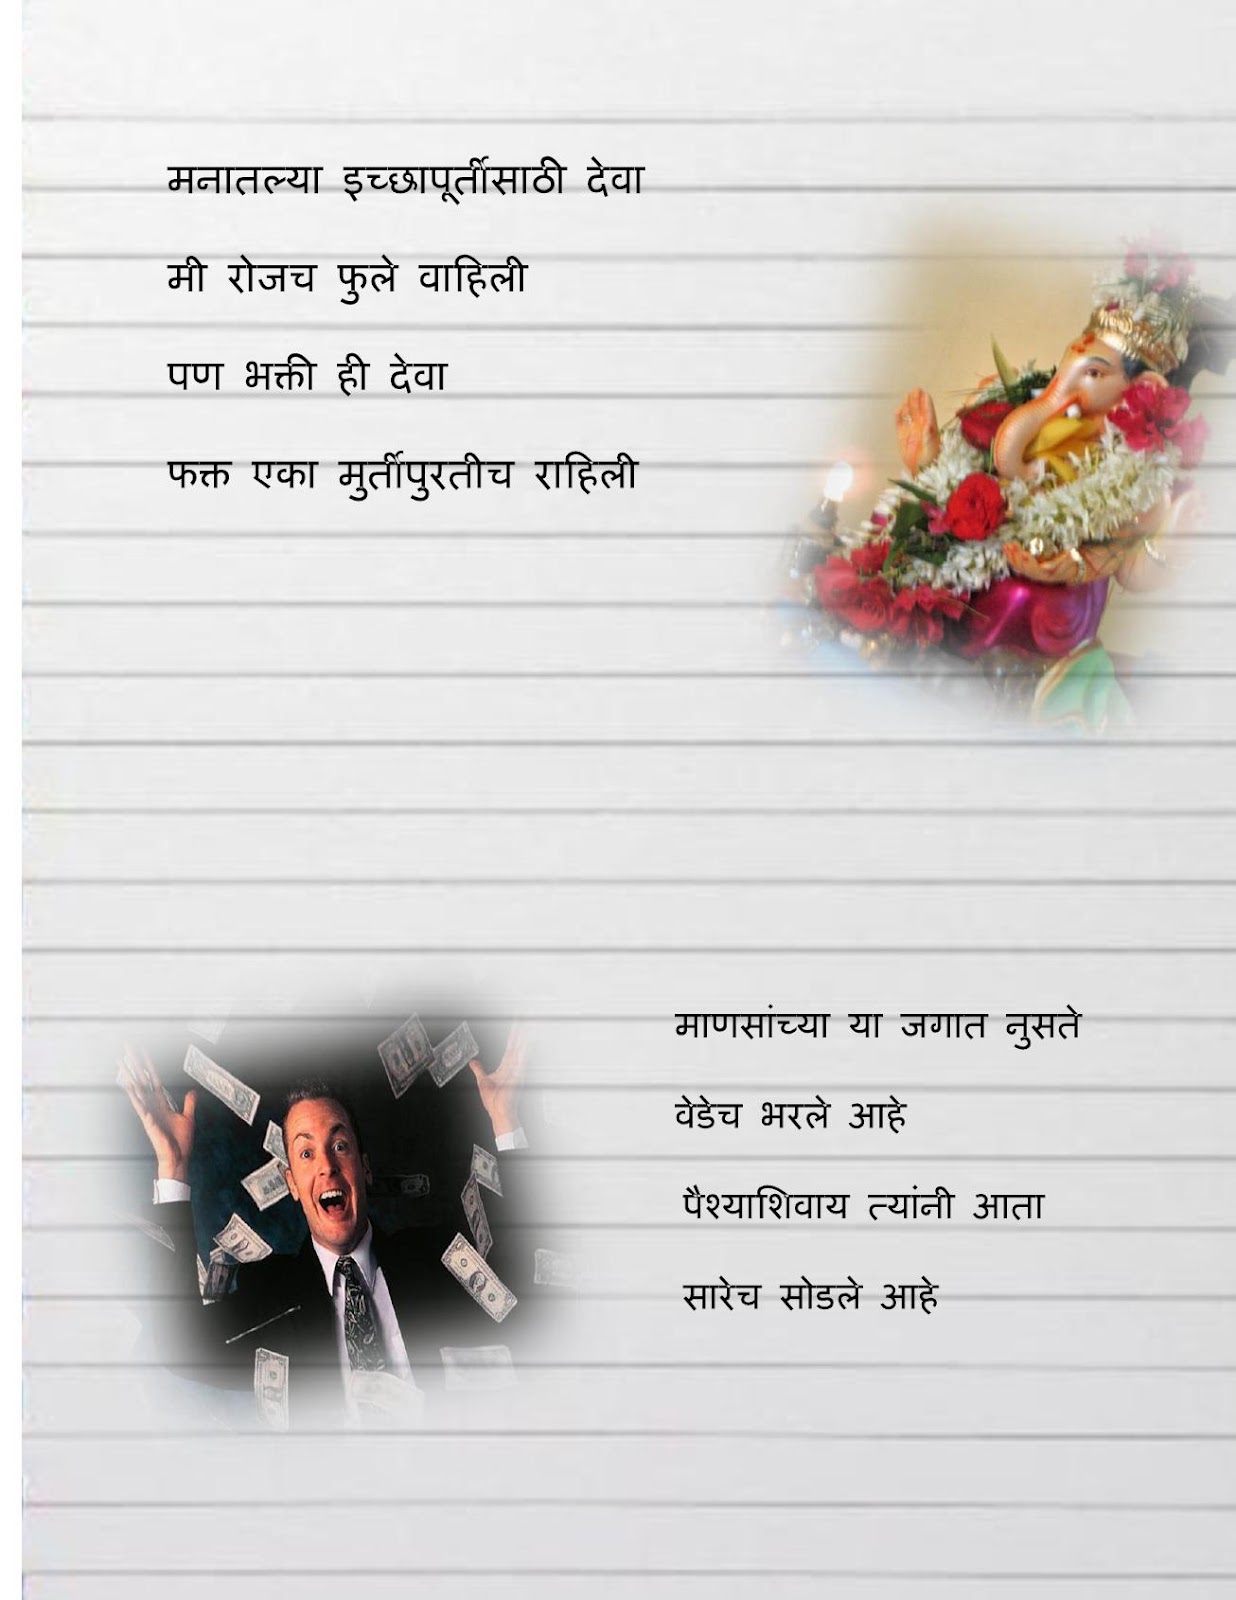 मनातल्या इच्छापूर्तीसाठी देवा
मी रोजच फुले वाहिली
पण भक्ती ही देवा
फक्त एका मुर्तीपुरतीच राहिली
माणसांच्या या जगात नुसते
वेडेच भरले आहे
पैश्याशिवाय त्यांनी आता
सारेच सोडले आहे